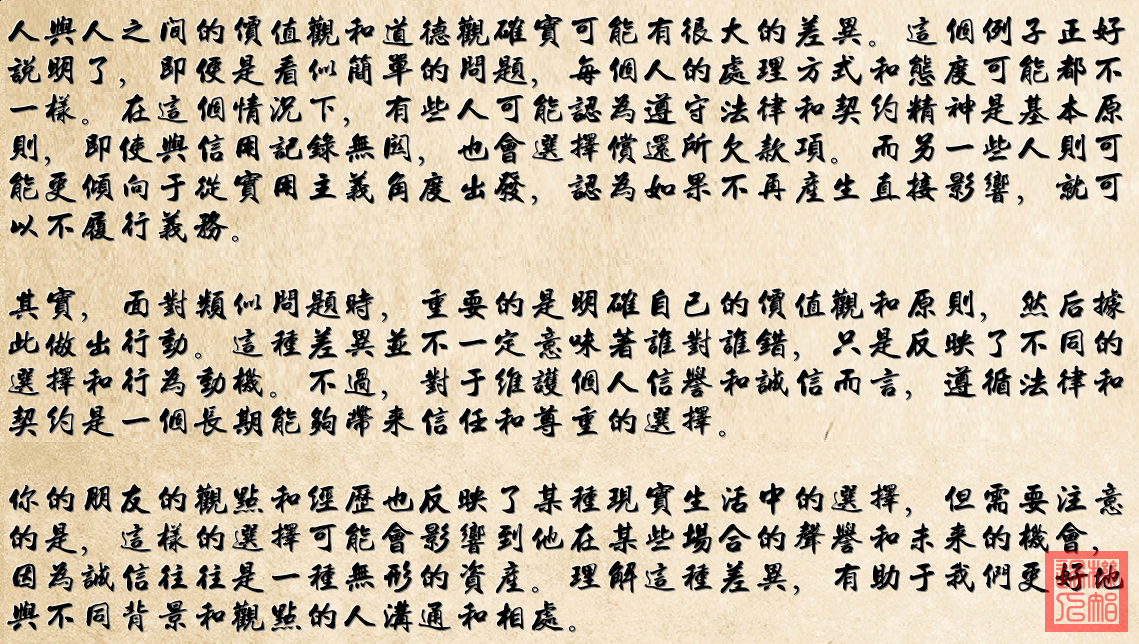 人與人之间的價值觀和道德觀確實可能有很大的差異。這個例子正好
説明了，即便是看似簡單的問題，每個人的處理方式和態度可能都不
一樣。在這個情況下，有些人可能認為遵守法律和契約精神是基本原
則，即使與信用記錄無関，也會選擇償還所欠款項。而另一些人則可
能更傾向于從實用主義角度出發，認為如果不再產生直接影響，就可
以不履行義務。
其實，面對類似問題時，重要的是明確自己的價值觀和原則，然后據
此做出行動。這種差異並不一定意味著誰對誰錯，只是反映了不同的
選擇和行為動機。不過，對于維護個人信譽和誠信而言，遵循法律和
契約是一個長期能夠帶來信任和尊重的選擇。
你的朋友的觀點和經歷也反映了某種現實生活中的選擇，但需要注意
的是，這樣的選擇可能會影響到他在某些場合的聲譽和未來的機會，
因為誠信往往是一種無形的資產。理解這種差異，有助于我們更好地
與不同背景和觀點的人溝通和相處。